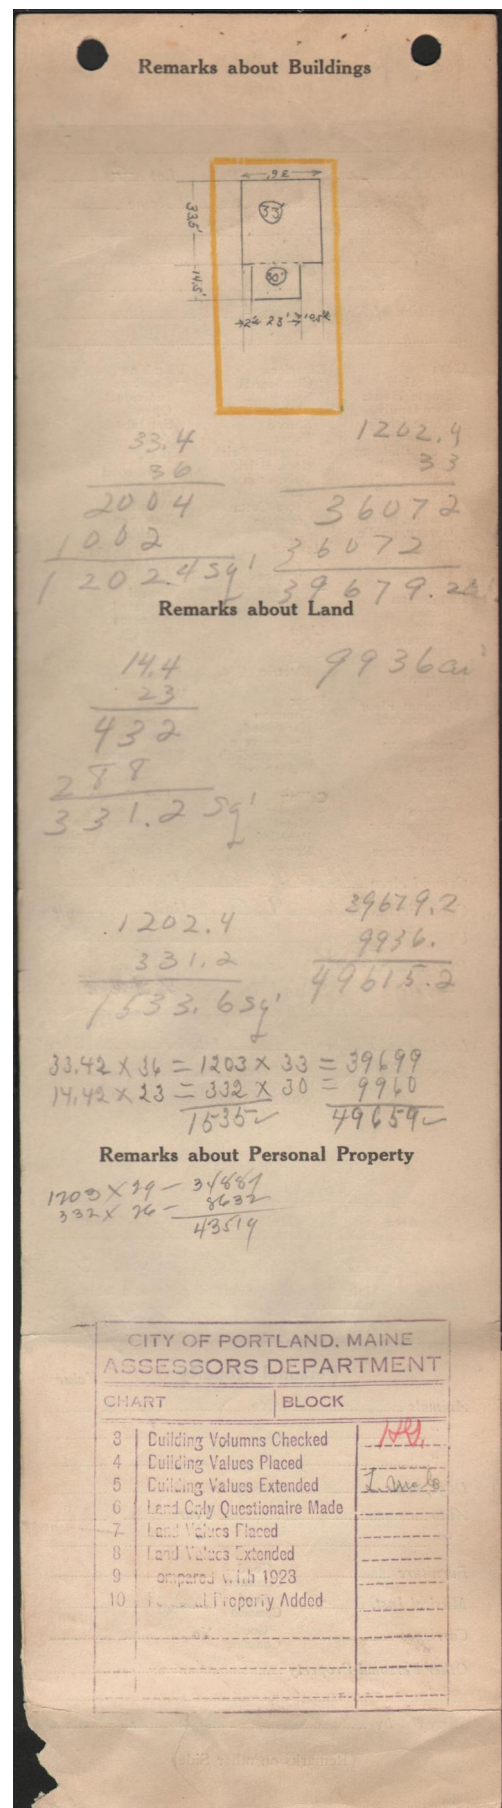 Remarks about Buildings
36'
33.5'
33'
14.5'
30'
2½ 23' 10.5'
33.4
36
2004
1002
1202.4 sq'
1202.4
33
36072
36072
39679.2
Remarks about Land
14.4
23
432
288
331.2 sq'
9936 cu'
1202.4
331.2
1533.6 sq'
39679.2
9936.
49615.2
33.42 X 36 = 1203 X 33 = 39699
14.42 X 23 = 332 X 30 = 9960
1535 ✓ 49659 ✓
Remarks about Personal Property
1203 X 29 — 34887
332 X 26 — 8632
43519
CITY OF PORTLAND, MAINE
ASSESSORS DEPARTMENT
CHART BLOCK
3 Building Volumns Checked
4 Building Values Placed
5 Building Values Extended
6 Land Only Questionaire Made
7 Land Values Placed
8 Land Values Extended
9 ompared With 1923
10 Property Added